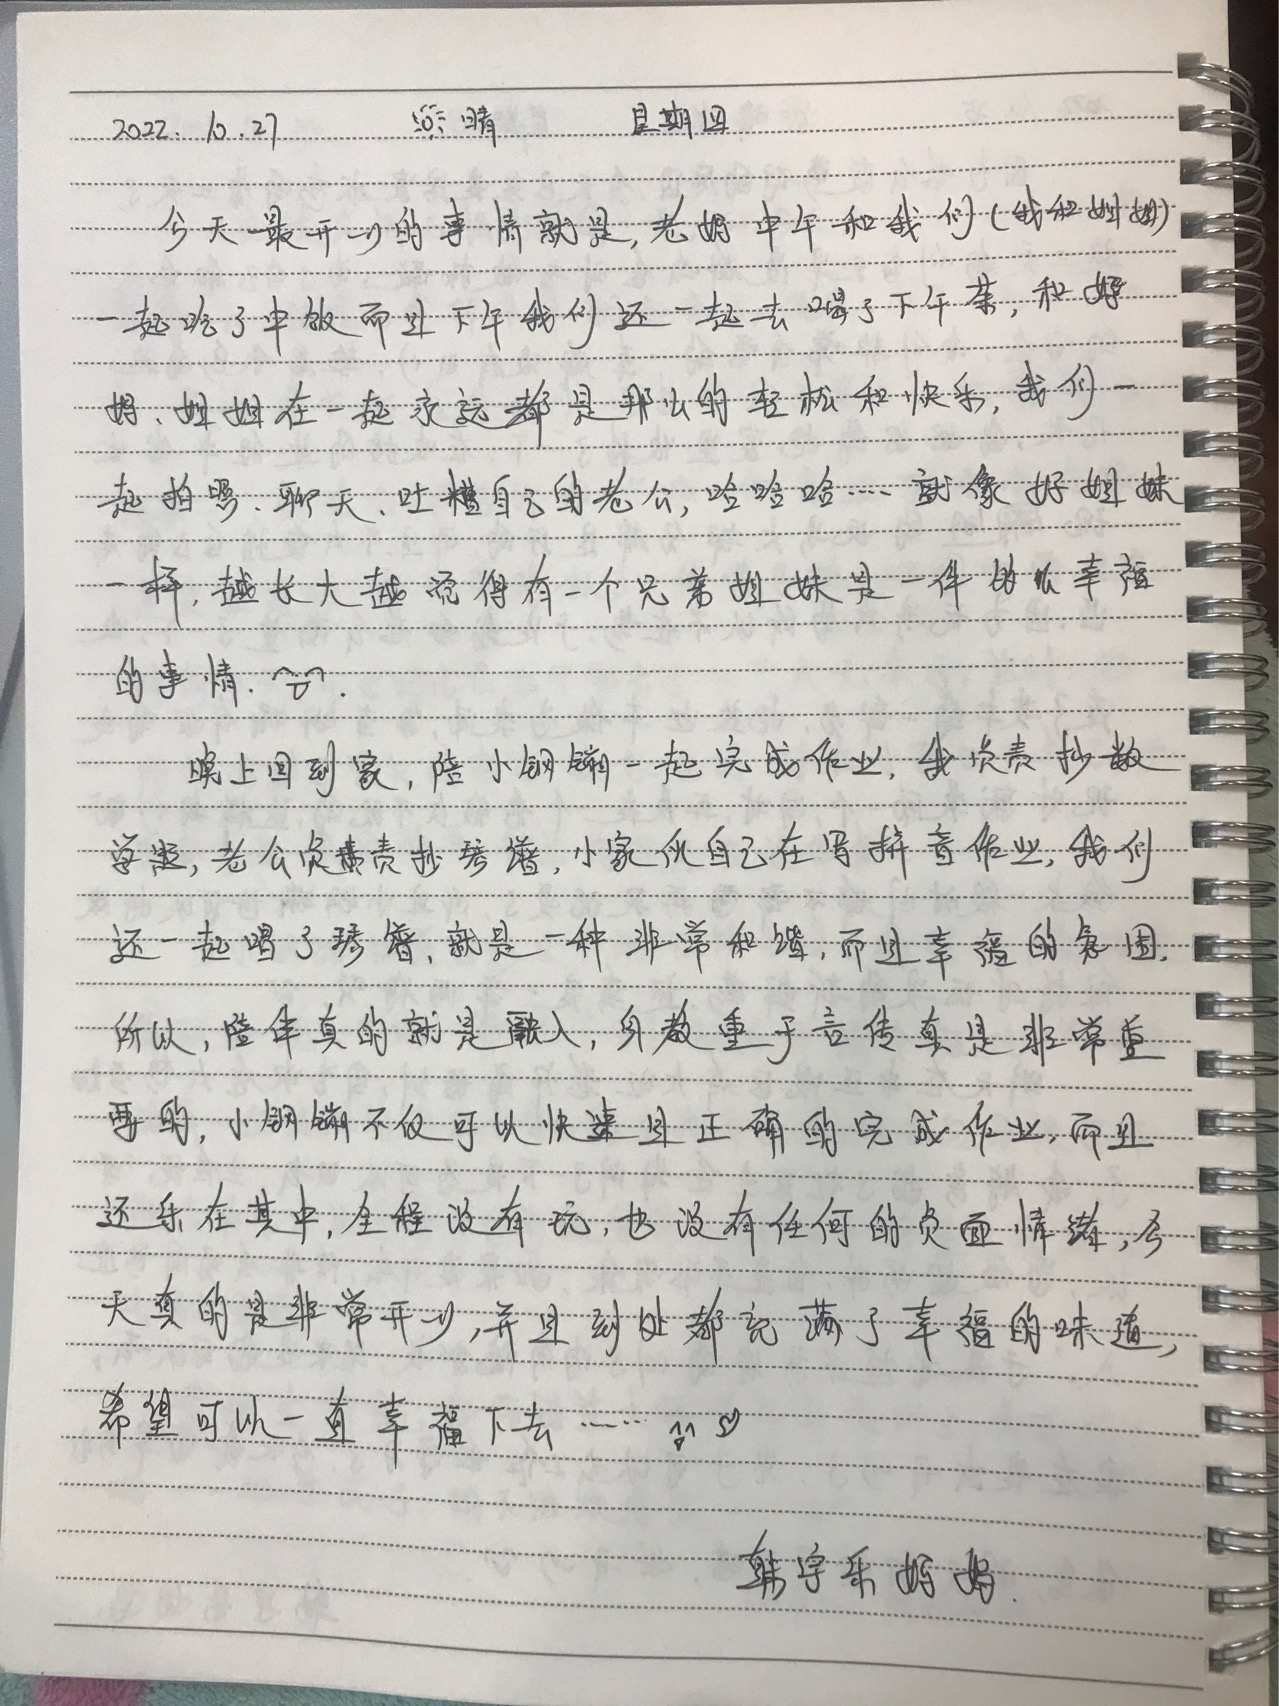 2022.10.27 晴 星期四
今天最开心的事情就是,老妈中午和我们(我和姐姐)
一起吃了中饭而且下午我们还一起去喝了下午茶,和妈
妈、姐姐在一起永远都是那么的轻松和快乐,我们一
起拍照、聊天、吐糟自己的老公,哈哈哈……就像好姐妹
一样,越长大越觉得有一个兄弟姐妹是一件多么幸福
的事情.
晚上回到家,陪小钢镚一起完成作业,我负责抄数
学题,老公负责抄琴谱,小家伙自己在写拼音作业,我们
还一起唱了琴谱,就是一种非常和谐,而且幸福的氛围.
所以,陪伴真的就是融入,身教重于言传真是非常重
要的,小钢镚不仅可以快速且正确的完成作业,而且
还乐在其中,全程没有玩,也没有任何的负面情绪,今
天真的是非常开心,并且到处都充满了幸福的味道,
希望可以一直幸福下去……
韩宇乐妈妈.